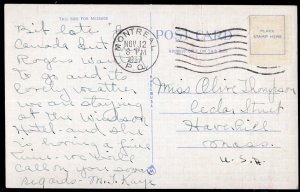 THIS SIDE FOR MESSAGE
Bit late for
Canada but
Rogers wanted
to go and its
lovely weather
we are staying
at the Windsor
Hotel - and she
is having a fine
time. we would
call on you soon
regards - M. Kaye
POST CARD
MONTREAL
NOV 12
8 PM
1937
P.Q.
PLACE
STAMP HERE
Miss Olive Thompson
Cedar Street
Haverhill
Mass.
U.S.A